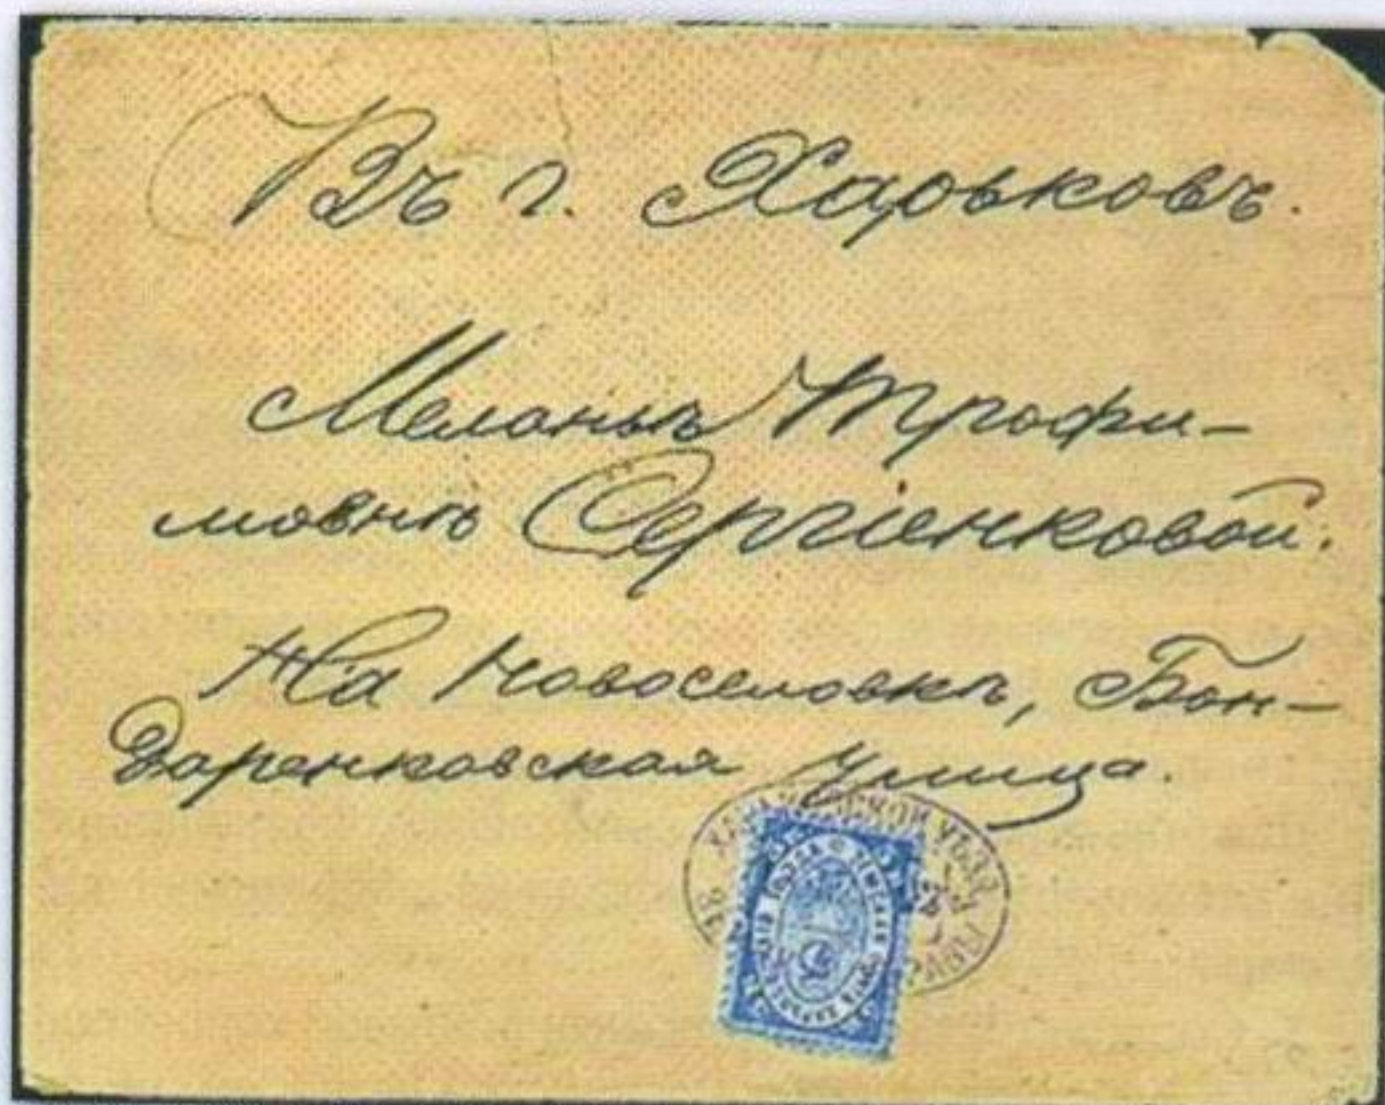 Въ г. Харьковъ.
Меланьѣ Трофи-
мовнѣ Сергіенковой.
На Новоселовкѣ, Бон-
даренковская улица.
5